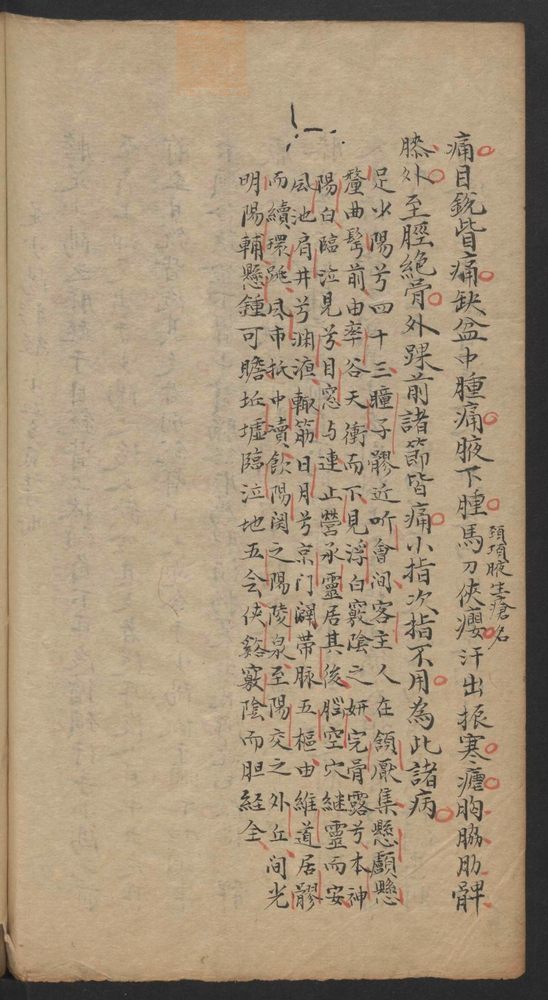 痛目銳眥痛缺盆中腫痛腋下腫馬刀俠癭汗出振寒瘧胸脇肋髀
頸項腋生瘡名
膝外至脛絕骨外踝前諸節皆痛小指次指不用為此諸病
足少陽兮四十三瞳子髎近听會間客主人在頷厭集懸顱懸
釐曲髩前由率谷天衝而下見浮白竅陰之妍完骨露兮本神
陽白臨泣見兮目窓与連止營承靈居其後腦空穴継靈而安
風池肩井兮渊液輒筋日月兮京门澗帯脉五樞由維道居髎
而續環跳風市抵中瀆飲陽関之陽陵泉至陽交之外丘间光
明陽輔懸鍾可瞻坵墟臨泣地五会俠谿竅陰而胆経全